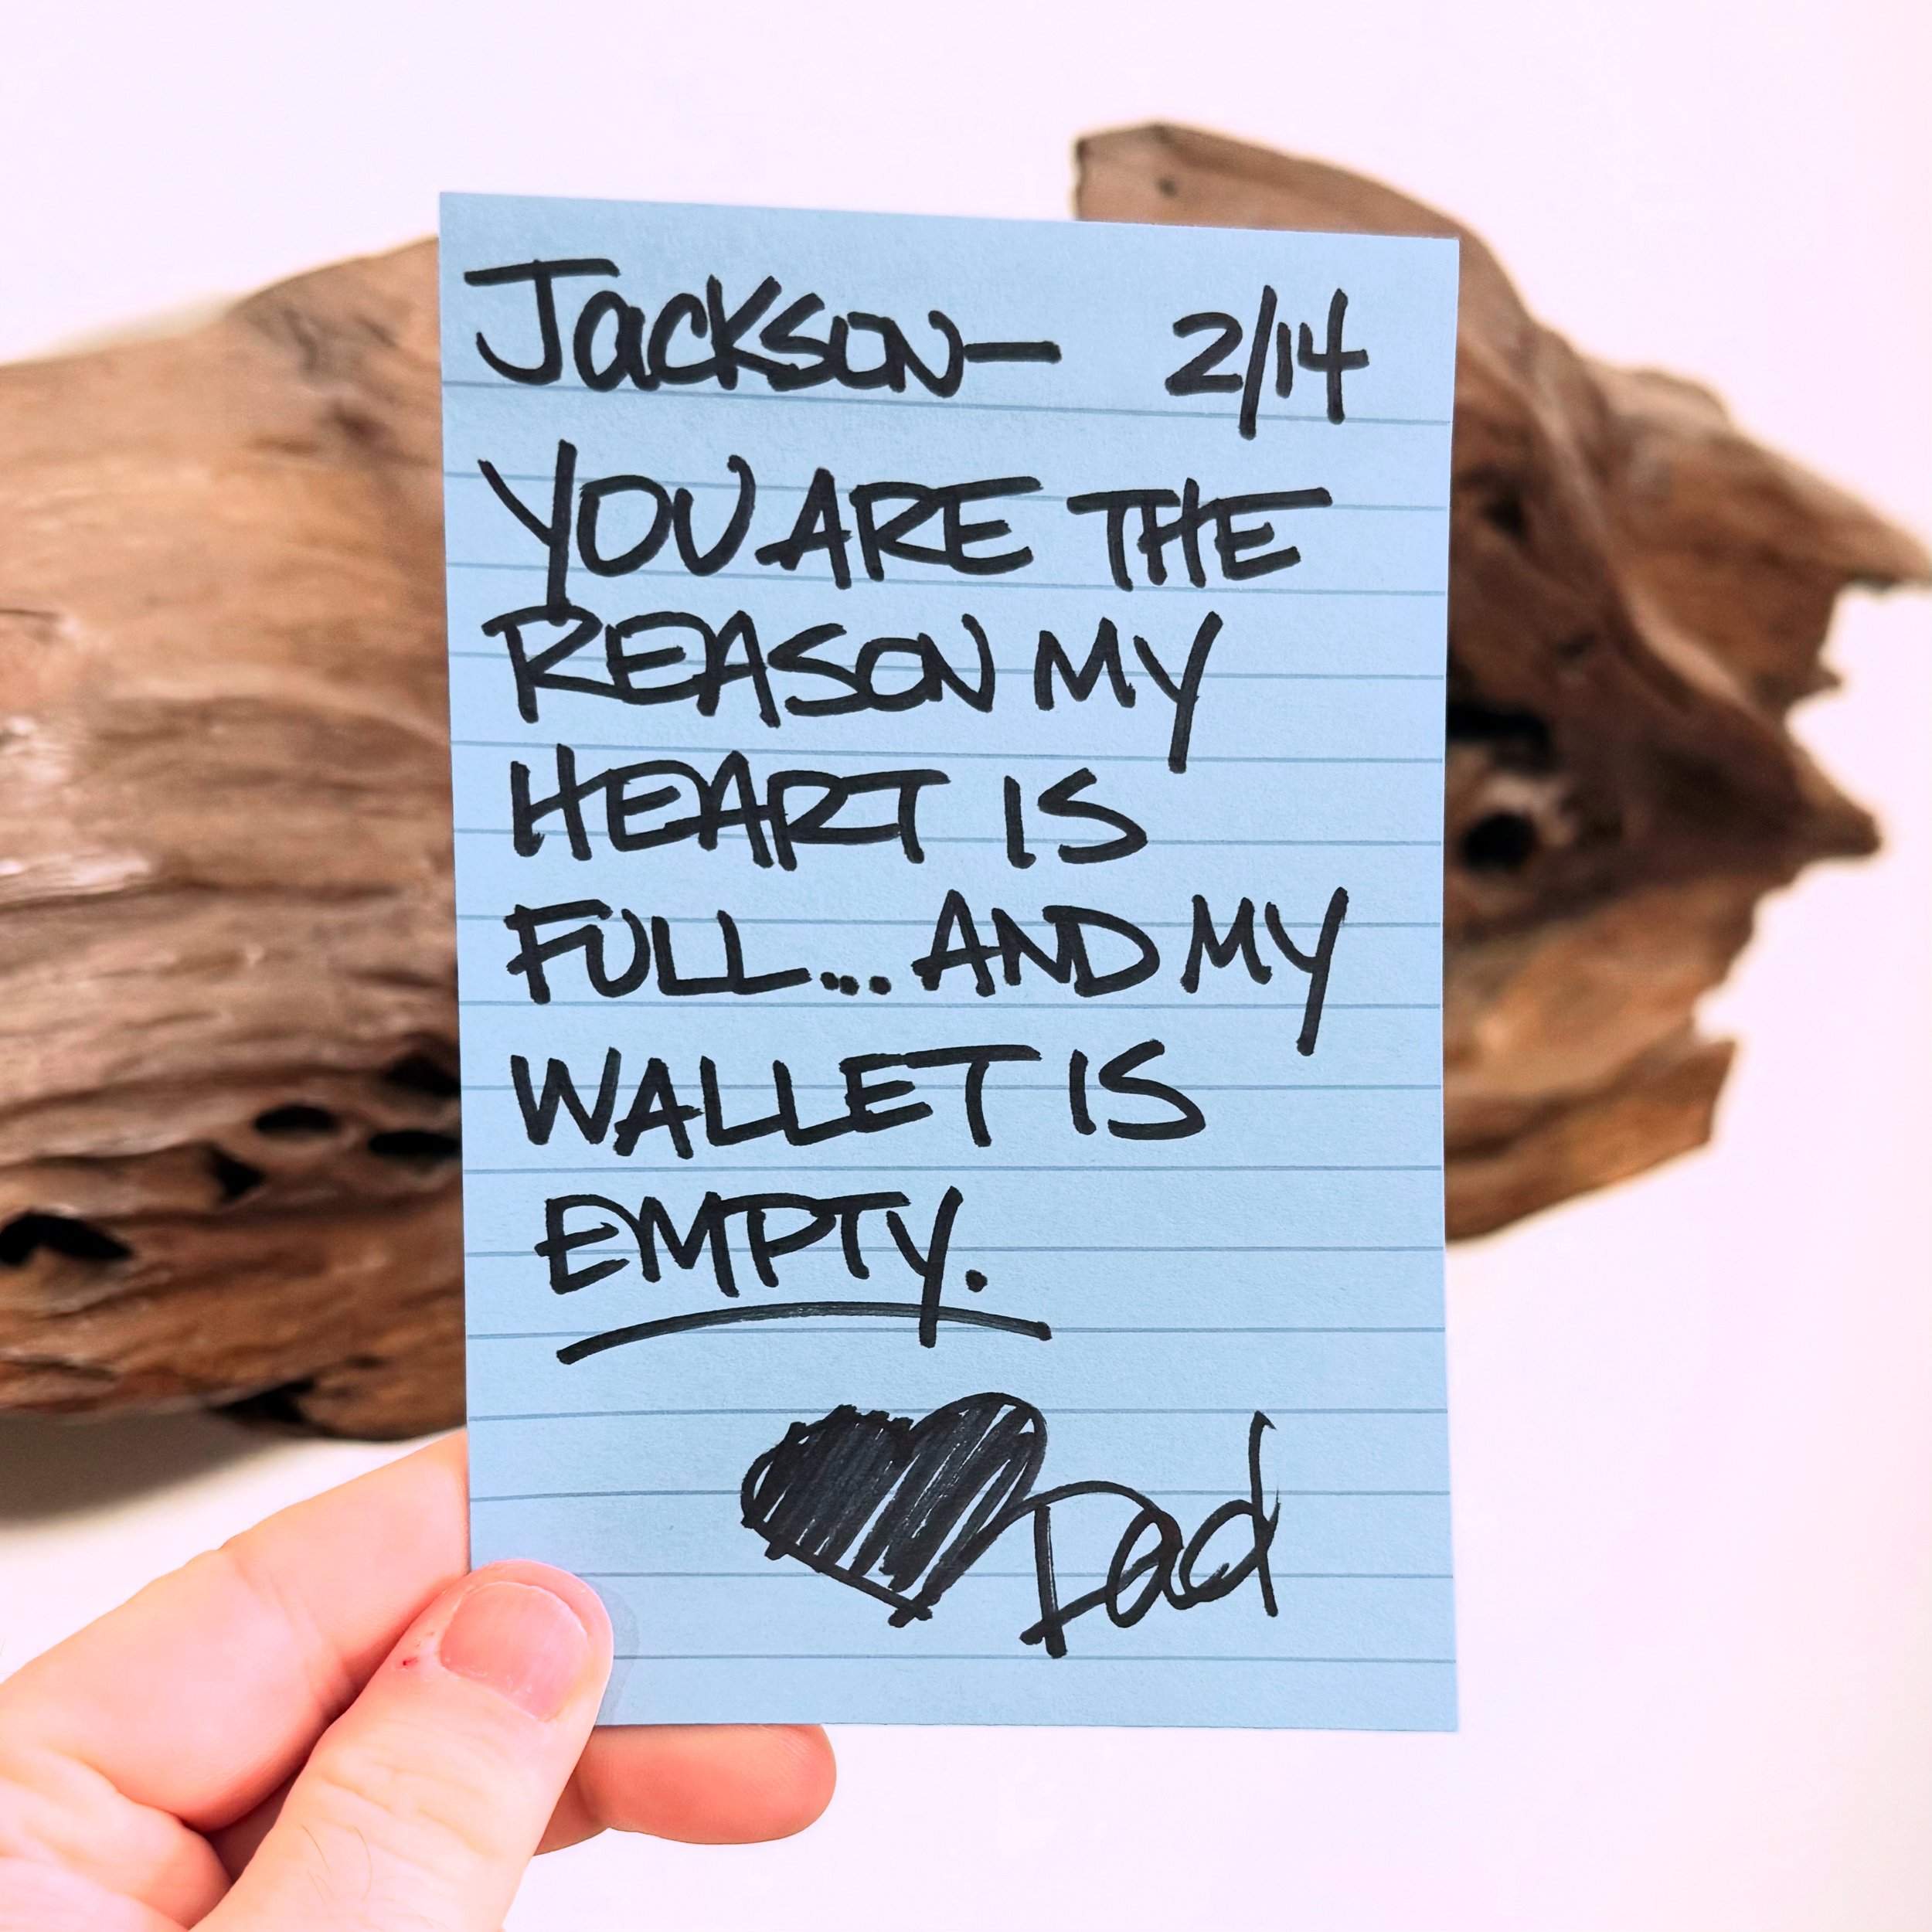 Jackson— 2/14
YOU ARE THE
REASON MY
HEART IS
FULL... AND MY
WALLET IS
EMPTY.
Dad